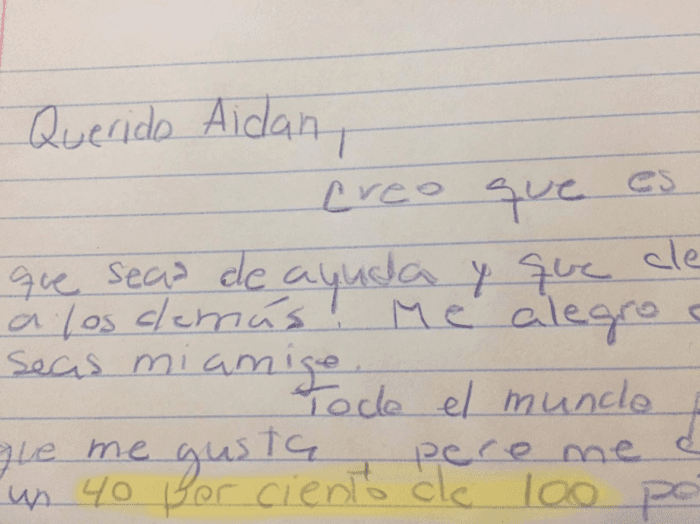 Querido Aidan,
Creo que es
que seas de ayuda y que de
a los demás. Me alegro
seas mi amigo.
Todo el mundo
que me gusta, pero me
un 40 por ciento de 100 po